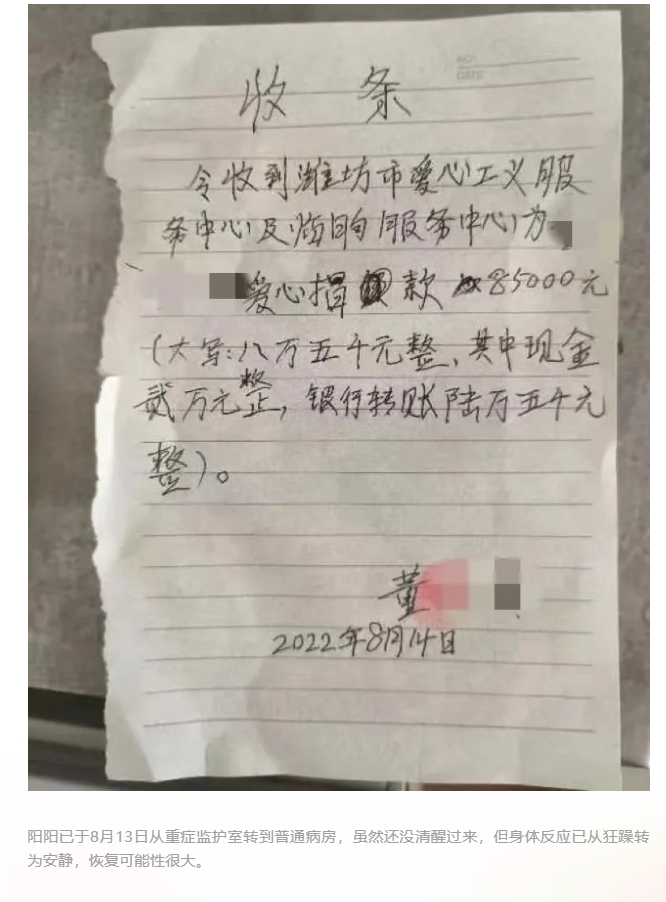 NO
DATE
收 条
令收到潍坊市爱心工义服
务中心及临朐服务中心为
爱心捐款85000元
(大写:八万五千元整,其中现金
贰万元整,银行转账陆万五千元
整)。
董
2022年8月14日
阳阳已于8月13日从重症监护室转到普通病房，虽然还没清醒过来，但身体反应已从狂躁转
为安静，恢复可能性很大。